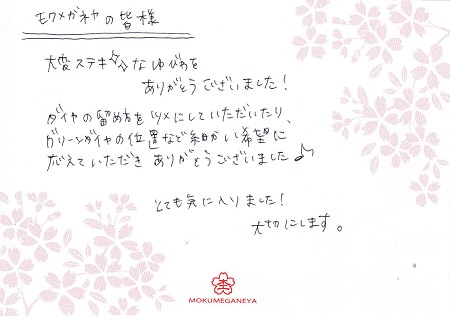 モクメガネヤの皆様
大変ステキなゆびわを
ありがとうございました!
ダイヤの留め方をツメにしていただいたり、
グリーンダイヤの位置など細かい希望に
応えていただき ありがとうございました♪
とても気に入りました!
大切にします。
杢
MOKUMEGANEYA